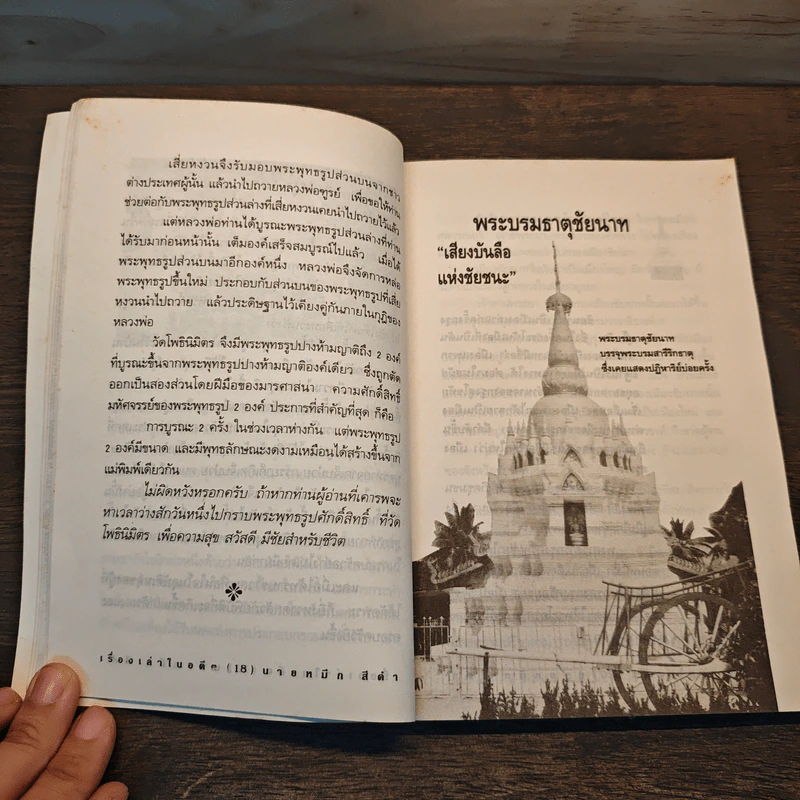 เสี่ยหงวนจึงรับมอบพระพุทธรูปส่วนบนจากชาว
ต่างประเทศผู้นั้น แล้วนำไปถวายหลวงพ่อฑูรย์ เพื่อขอให้ท่าน
ช่วยต่อกับพระพุทธรูปส่วนล่างที่เสี่ยหงวนเคยนำไปถวายไว้แล้ว
แต่หลวงพ่อท่านได้บูรณะพระพุทธรูปส่วนล่างที่ท่าน
ได้รับมาก่อนหน้านั้น เต็มองค์เสร็จสมบูรณ์ไปแล้ว เมื่อได้
พระพุทธรูปส่วนบนมาอีกองค์หนึ่ง หลวงพ่อจึงจัดการหล่อ
พระพุทธรูปขึ้นใหม่ ประกอบกับส่วนบนของพระพุทธรูปที่เสี่ย
หงวนนำไปถวาย แล้วประดิษฐานไว้เคียงคู่กันภายในกุฏิของ
หลวงพ่อ
วัดโพธินิมิตร จึงมีพระพุทธรูปปางห้ามญาติถึง 2 องค์
ที่บูรณะขึ้นจากพระพุทธรูปปางห้ามญาติองค์เดียว ซึ่งถูกตัด
ออกเป็นสองส่วนโดยฝีมือของมารศาสนา ความศักดิ์สิทธิ์
มหัศจรรย์ของพระพุทธรูป 2 องค์ ประการที่สำคัญที่สุด ก็คือ
การบูรณะ 2 ครั้ง ในช่วงเวลาห่างกัน แต่พระพุทธรูป
2 องค์มีขนาด และมีพุทธลักษณะงดงามเหมือนได้สร้างขึ้นจาก
แม่พิมพ์เดียวกัน
ไม่ผิดหวังหรอกครับ ถ้าหากท่านผู้อ่านที่เคารพจะ
หาเวลาว่างสักวันหนึ่งไปกราบพระพุทธรูปศักดิ์สิทธิ์ ที่วัด
โพธินิมิตร เพื่อความสุข สวัสดี มีชัยสำหรับชีวิต
เรื่องเล่าในอดีต (18) นายหมึก สีดำ
พระบรมธาตุชัยนาท
“เสียงบันลือ
แห่งชัยชนะ”
พระบรมธาตุชัยนาท
บรรจุพระบรมสารีริกธาตุ
ซึ่งเคยแสดงปฏิหาริย์บ่อยครั้ง